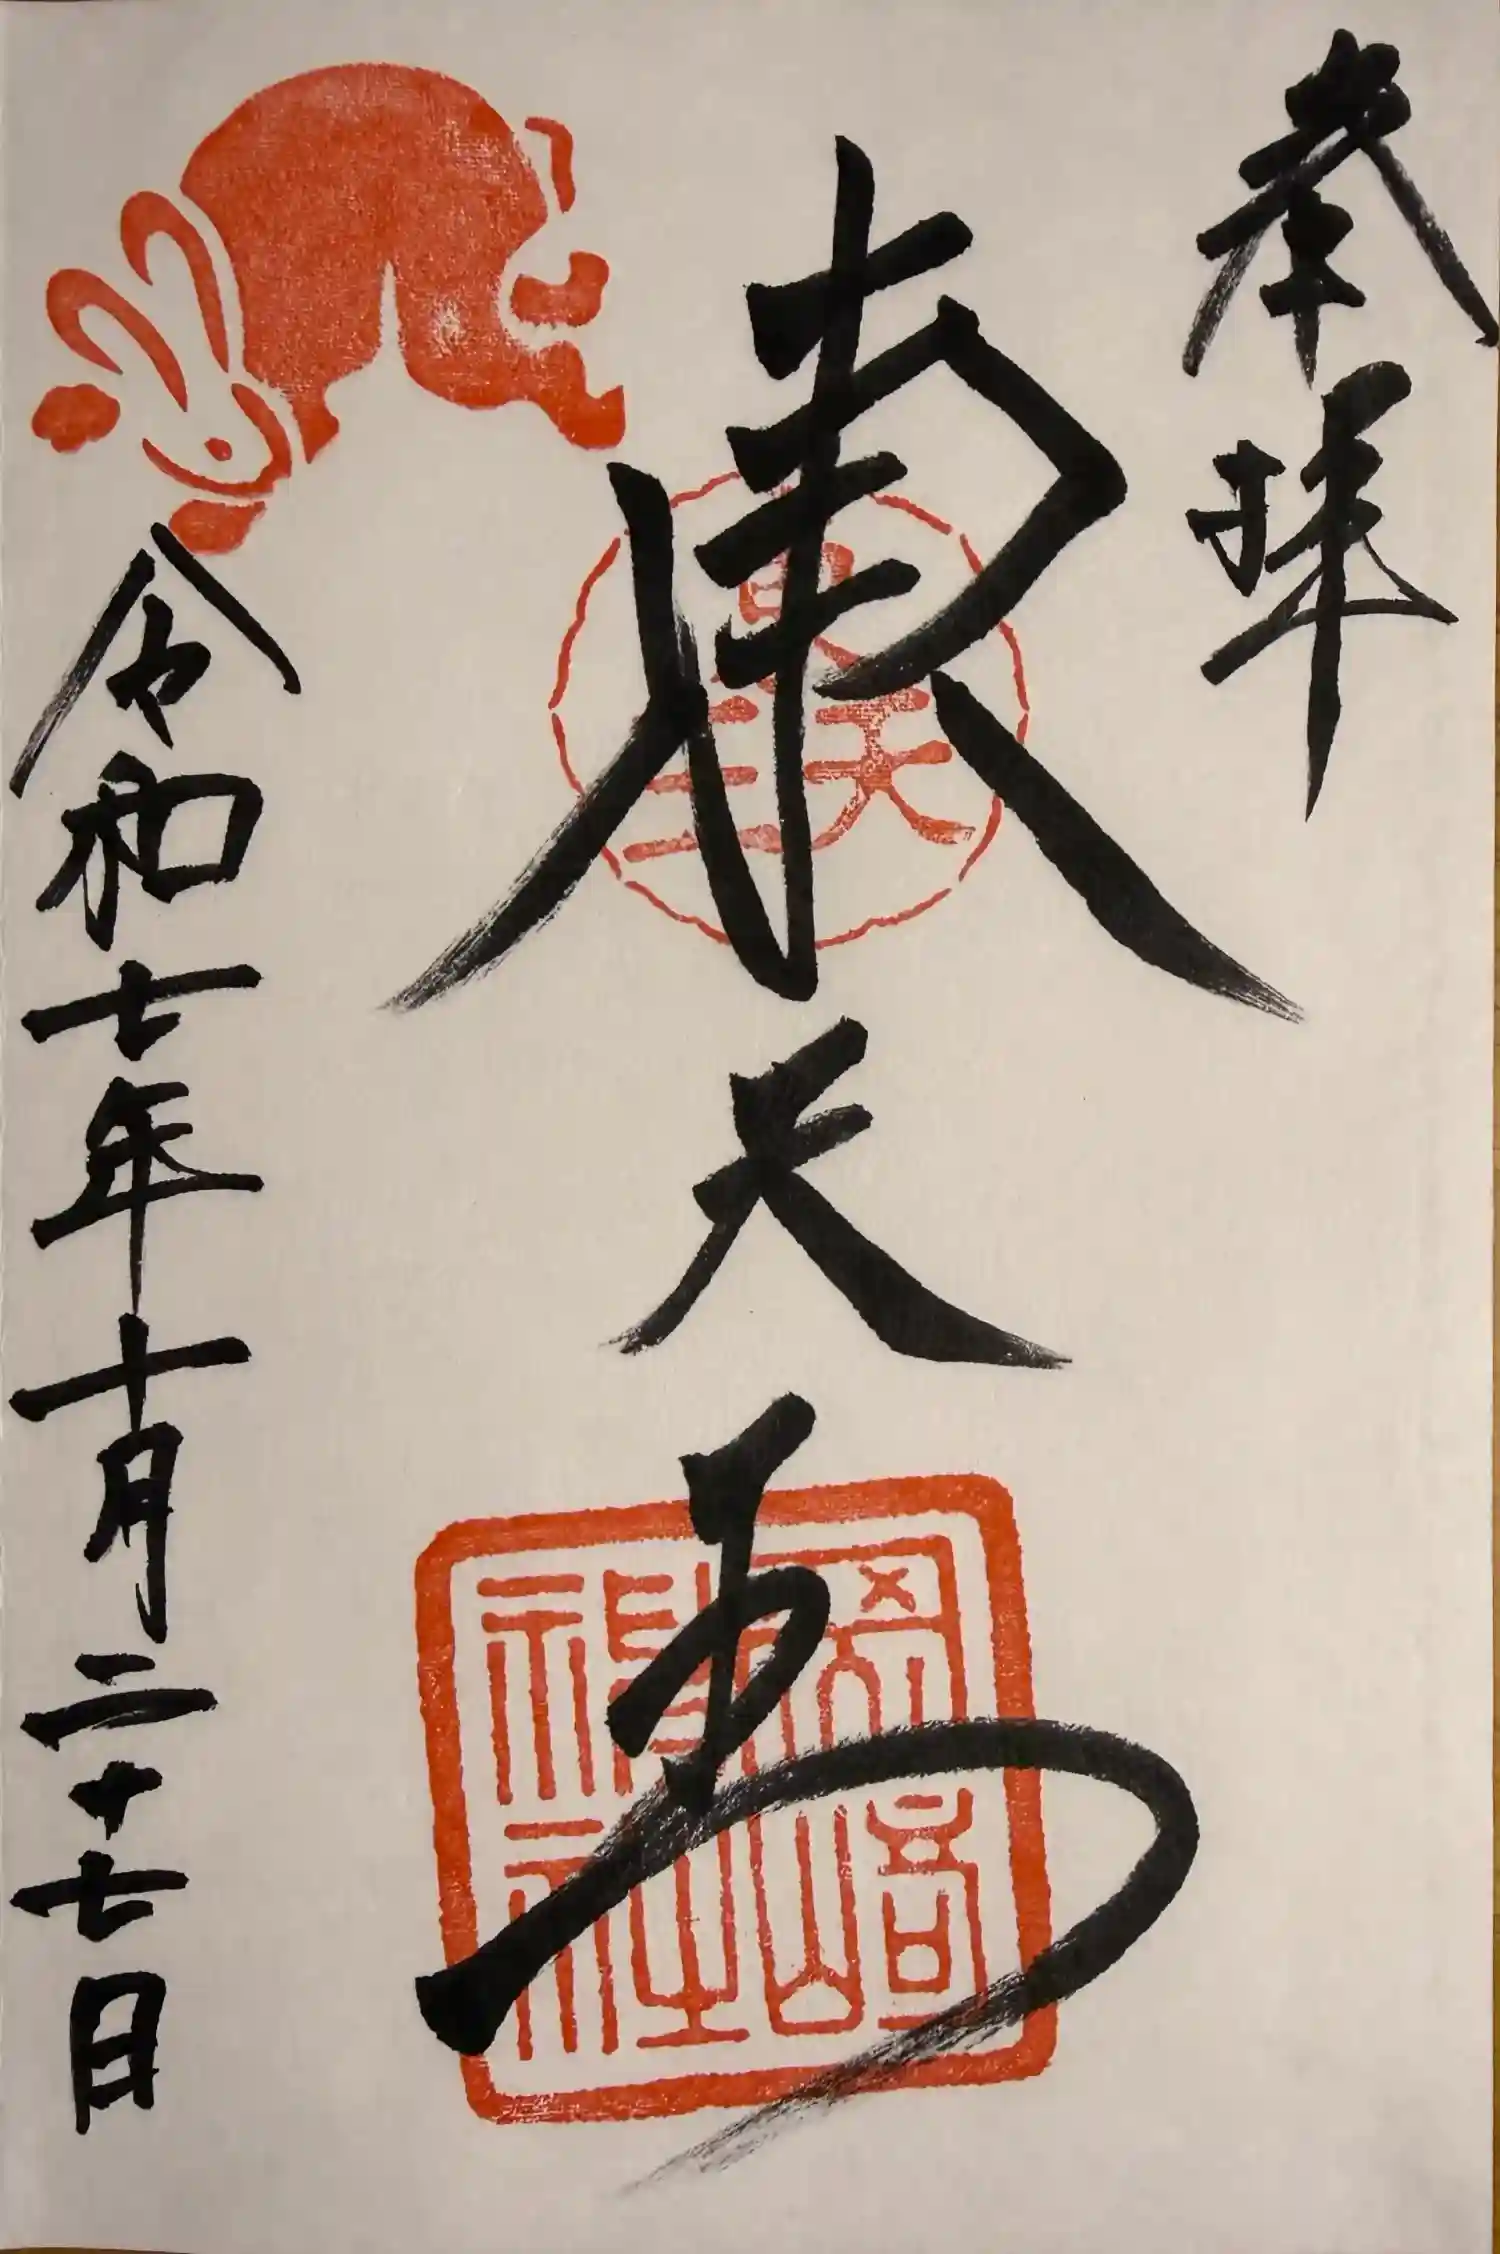 奉拝
東天王
東天王
岡崎
神社
令和七年十月二十七日